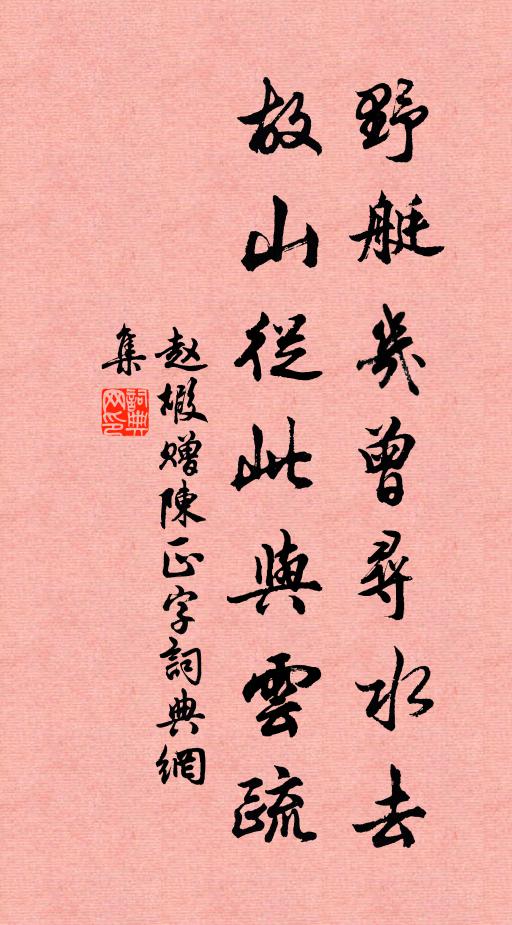 野艇幾曾尋水去
故山從此與雲疏
赵嘏贈陳正字詞典網
集
詞典网印